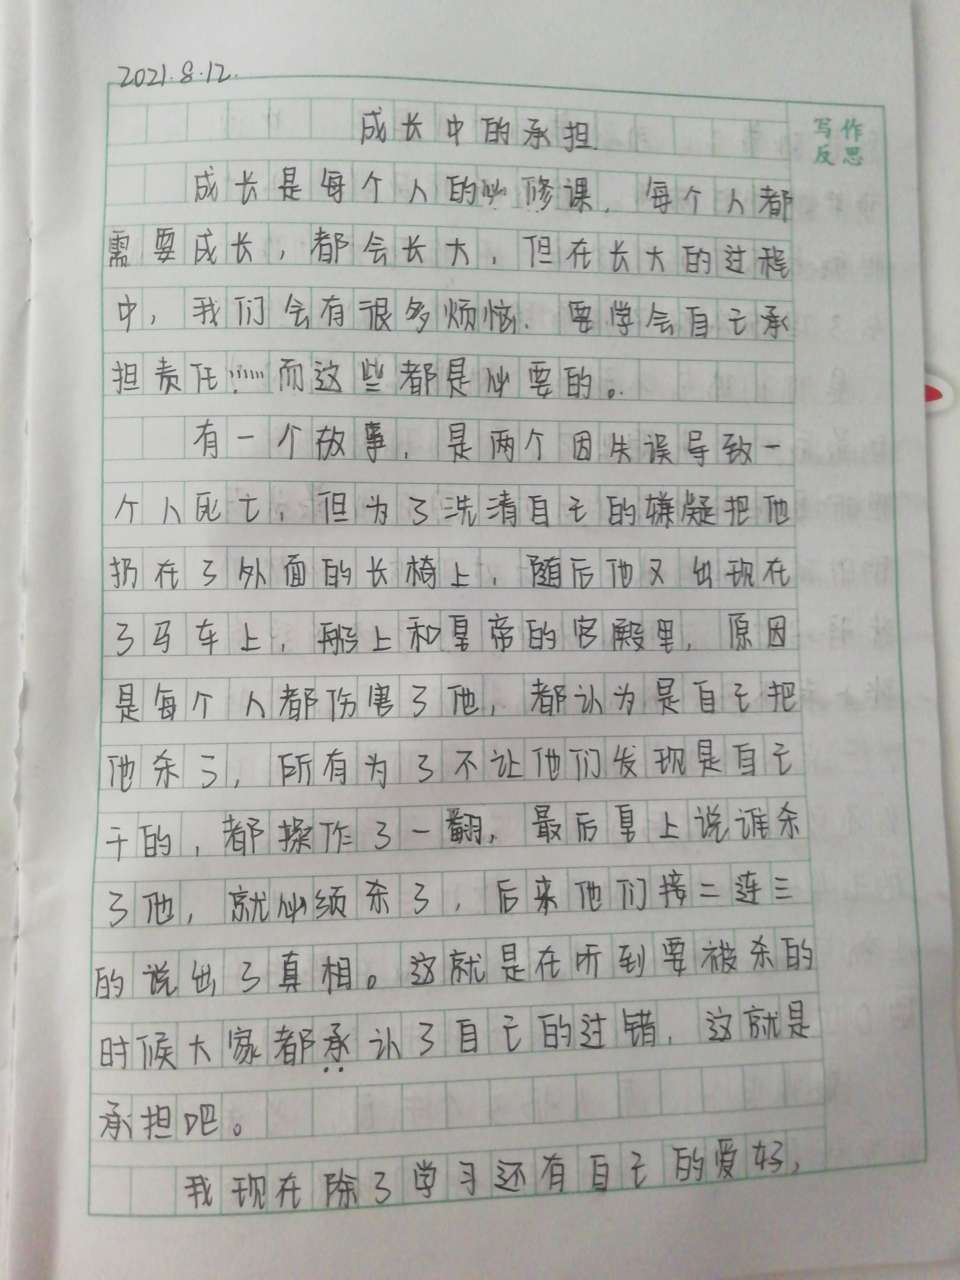 2021.8.12.
成长中的承担
写作
反思
成长是每个人的必修课，每个人都
需要成长，都会长大，但在长大的过程
中，我们会有很多烦恼．要学会自己承
担责任……而这些都是必要的。
有一个故事，是两个因失误导致一
个人死亡，但为了洗清自己的嫌疑把他
扔在了外面的长椅上，随后他又出现在
了马车上，船上和皇帝的宫殿里，原因
是每个人都伤害了他，都认为是自己把
他杀了，所有为了不让他们发现是自己
干的，都操作了一翻，最后皇上说谁杀
了他，就必须杀了，后来他们接二连三
的说出了真相。这就是在听到要被杀的
时候大家都承认了自己的过错，这就是
承担吧。
我现在除了学习还有自己的爱好，